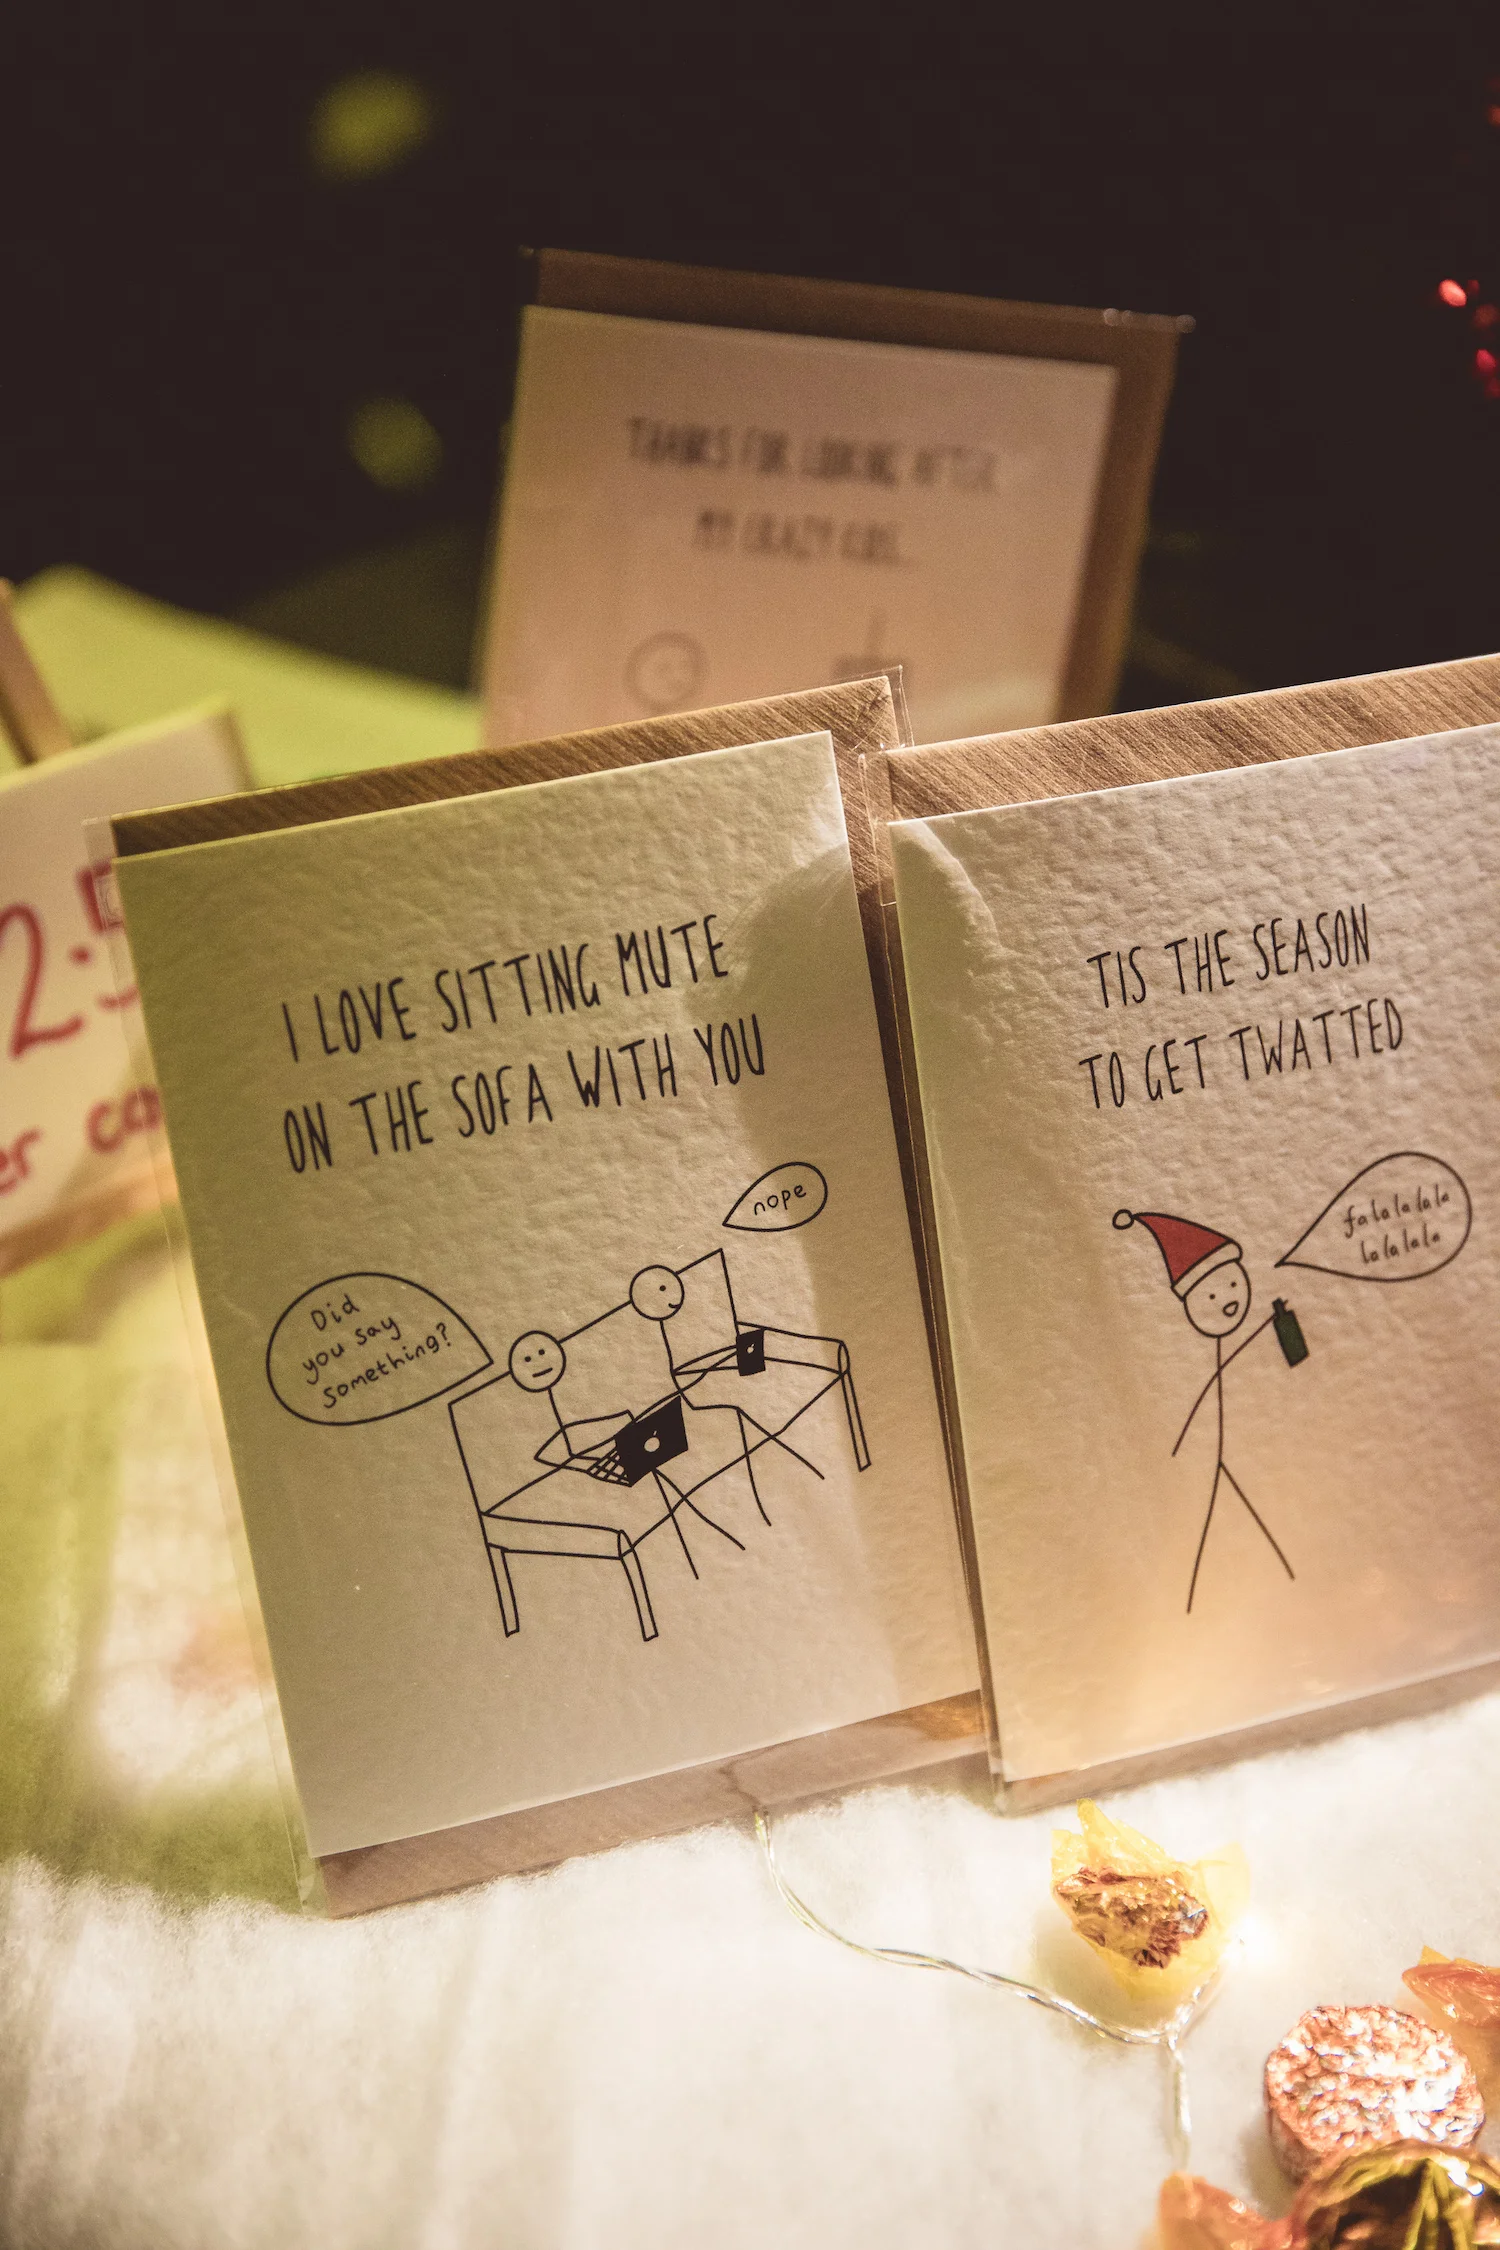 THANKS FOR LOOKING AFTER
MY CRAZY KIDS...
2.5
er ca
I LOVE SITTING MUTE
ON THE SOFA WITH YOU
nope
Did
you say
something?
TIS THE SEASON
TO GET TWATTED
fa la la la la
la la la la